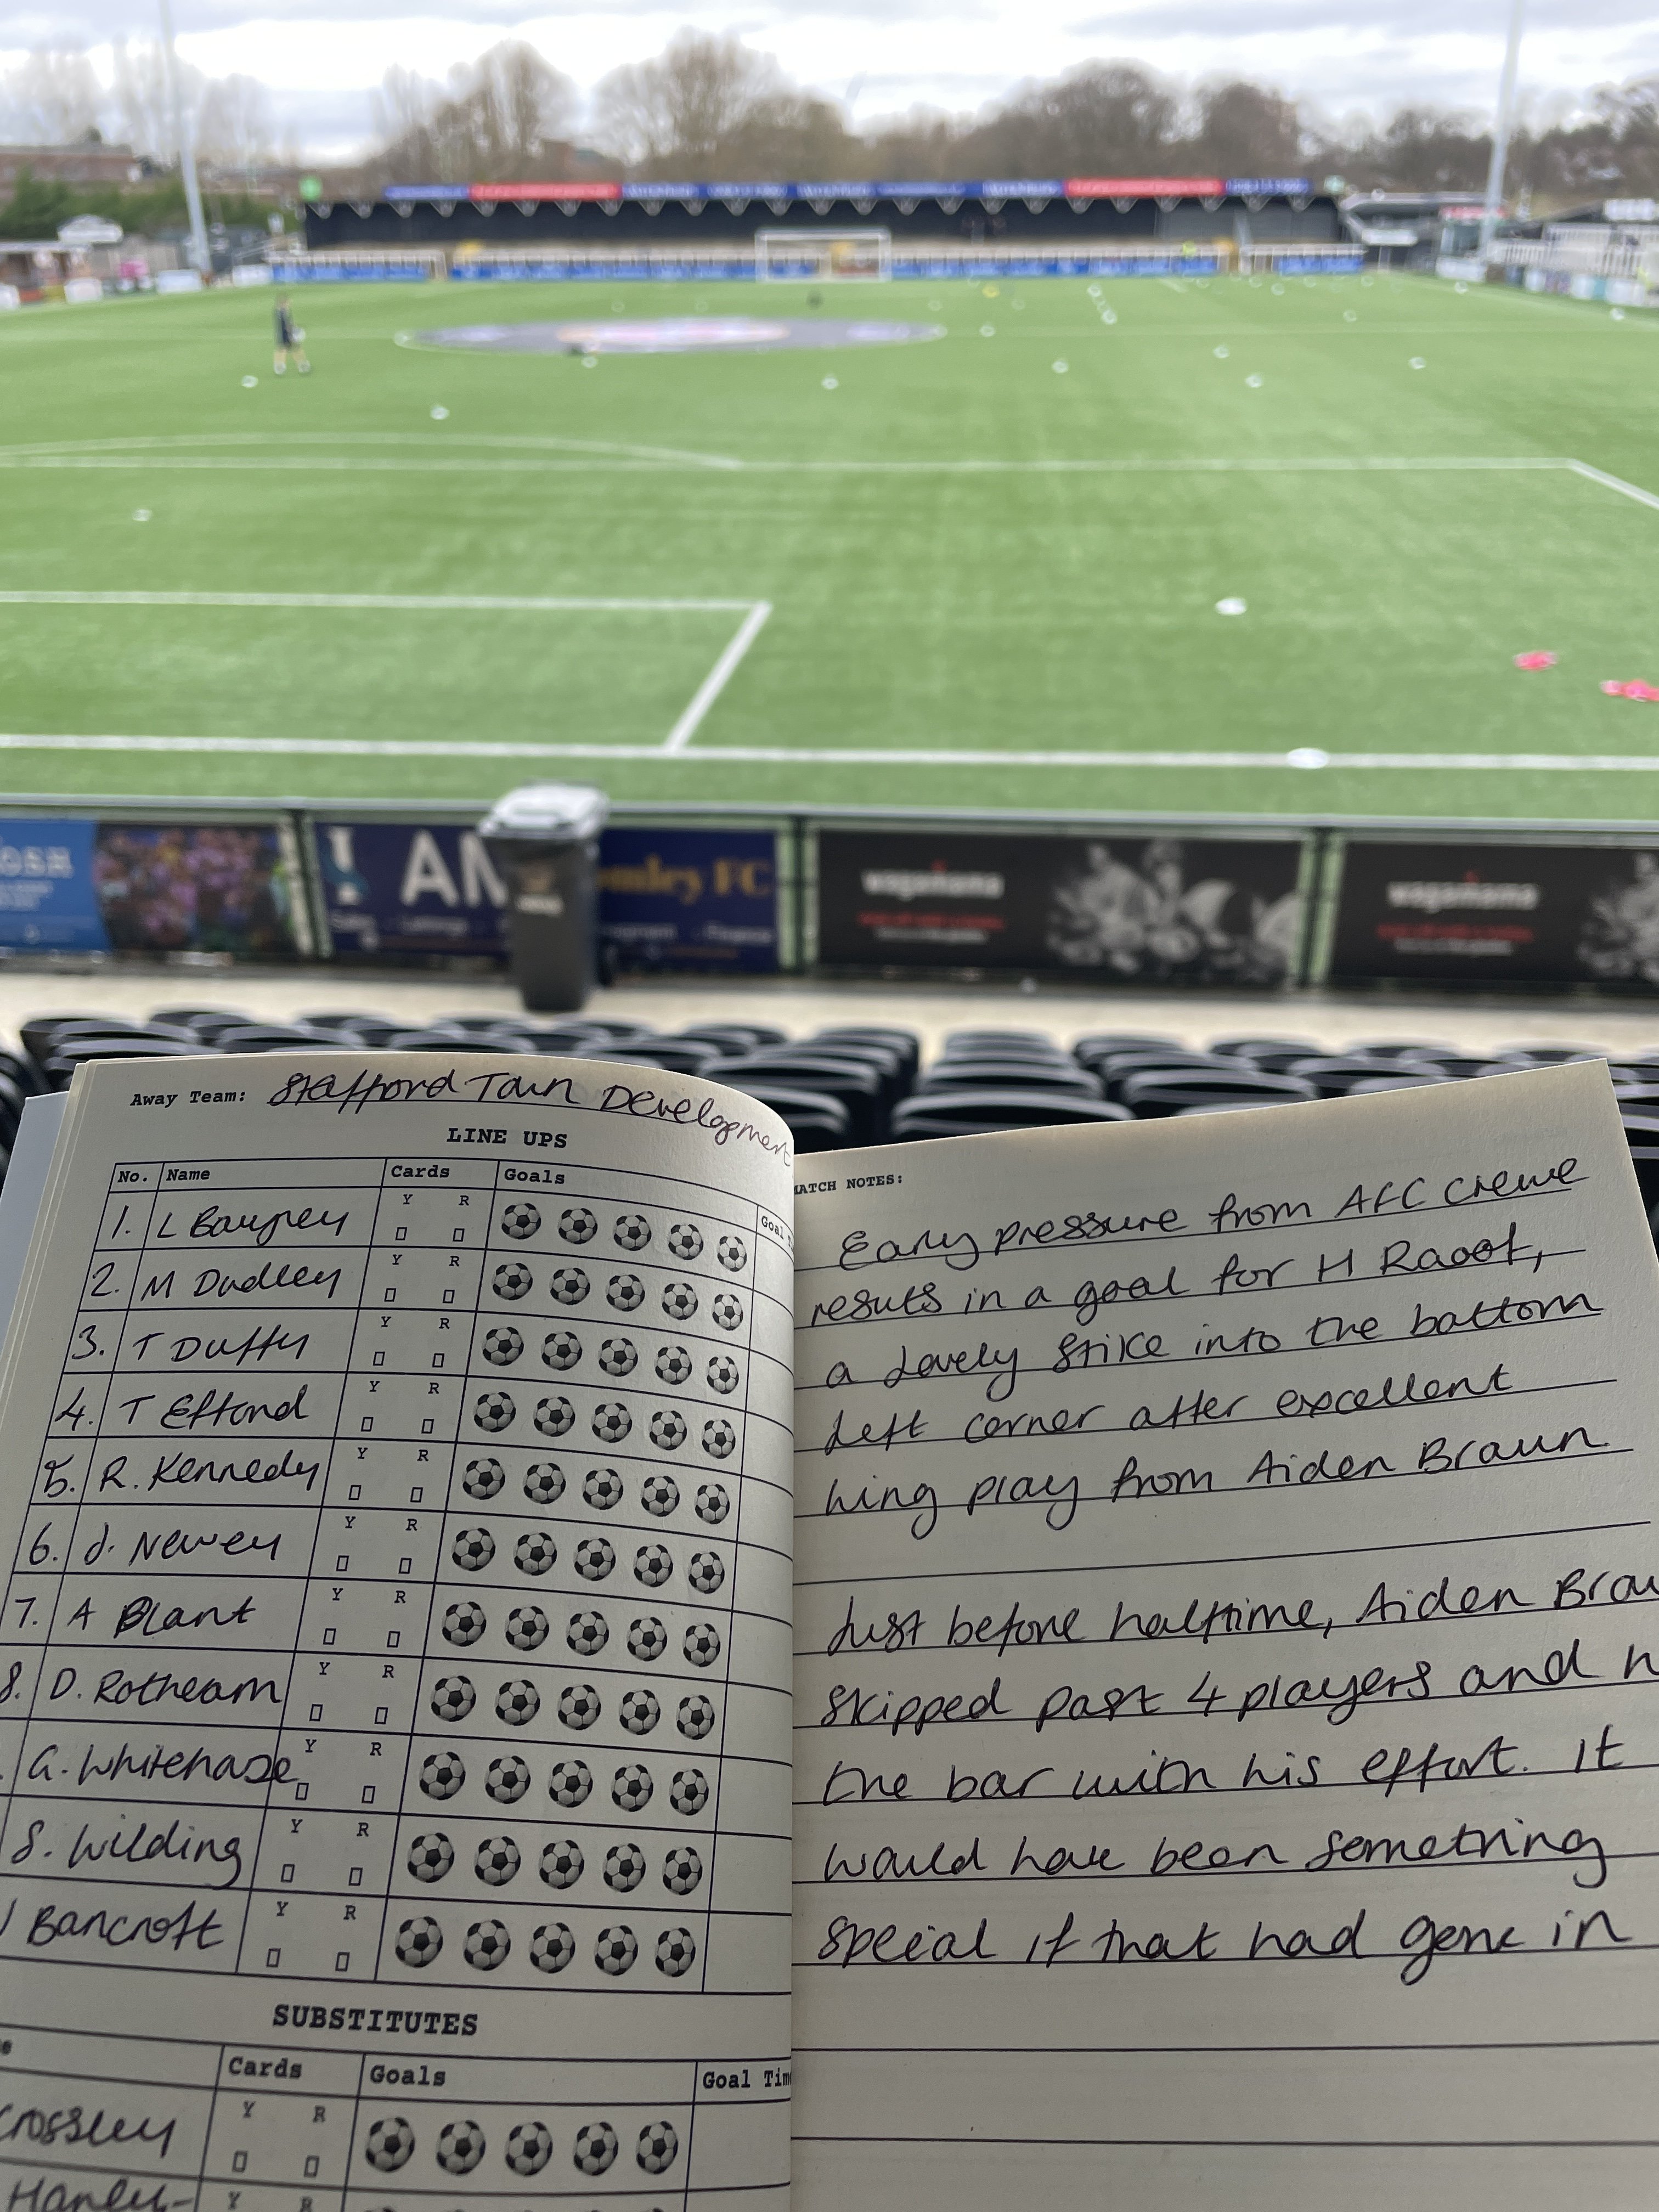 OSH
AM
omley FC
Finance
wagamama
wagamama
Away Team: Stafford Town Development
LINE UPS
No. Name Cards Goals
Y R
1. L Baugney
Y R
2. M Dudley
Y R
3. T Duffy
Y R
4. T Effond
Y R
5. R. Kennedy
Y R
6. J. Newey
Y R
7. A Blant
Y R
8. D. Rotheam
Y R
G. Whitehase
Y R
S. Wilding
Y R
Bancroft
Y R
SUBSTITUTES
Cards Goals Goal Tim
Y R
Crossley
Y R
Hanley-
MATCH NOTES:
Early pressure from AFC Crewe
resuts in a goal for H Raoot,
a lovely stike into the bottom
left corner after excellent
wing play from Aiden Braun.
Just before halftime, Aiden Brau
skipped past 4 players and h
the bar with his effort. It
would have been something
special if that had gone in